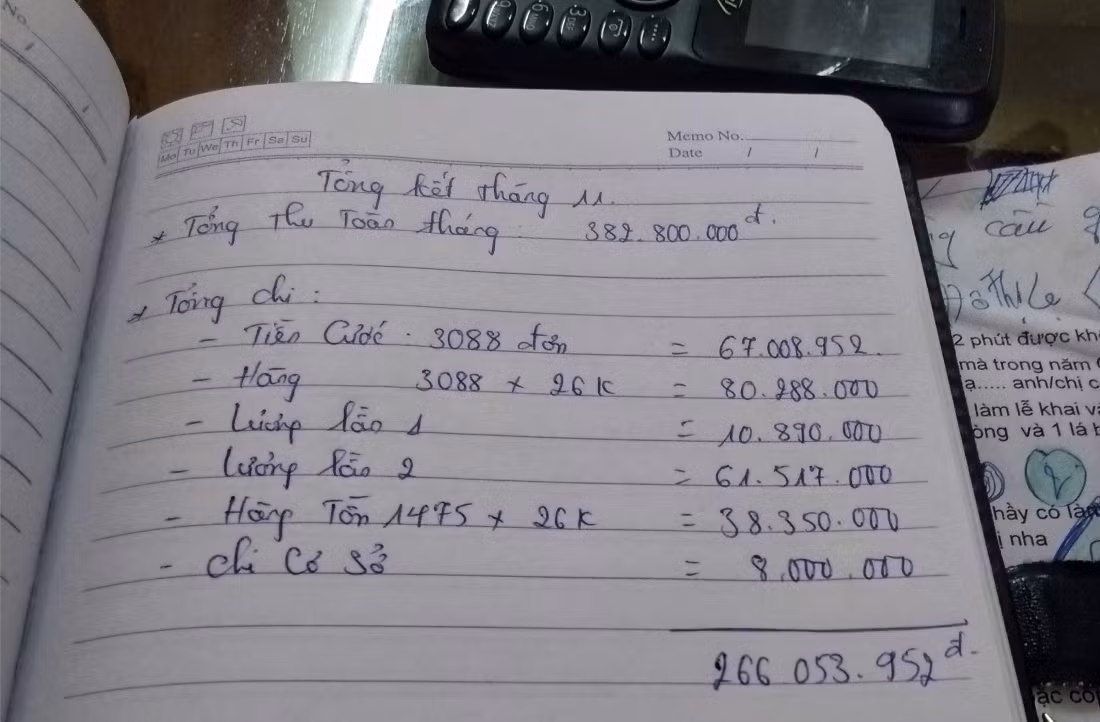 No.
Mo Tu We Th Fr Sa Su
Memo No.
Date / /
Tổng kết tháng 11.
* Tổng Thu Toàn tháng: 382.800.000đ.
* Tổng chi:
- Tiền Cước. 3088 đơn = 67.008.952.
- Hàng 3088 x 26K = 80.288.000
- Lương Lão 1 = 10.890.000
- Lương Lão 2 = 61.517.000
- Hàng Tồn 1475 x 26K = 38.350.000
- Chi Cơ Sở = 8.000.000
266 053.952đ.
câu
2 phút được kh
mà trong năm
a..... anh/chị c
làm lễ khai v
òng và 1 lá b
hầy có làm
ị nha
ặc cô